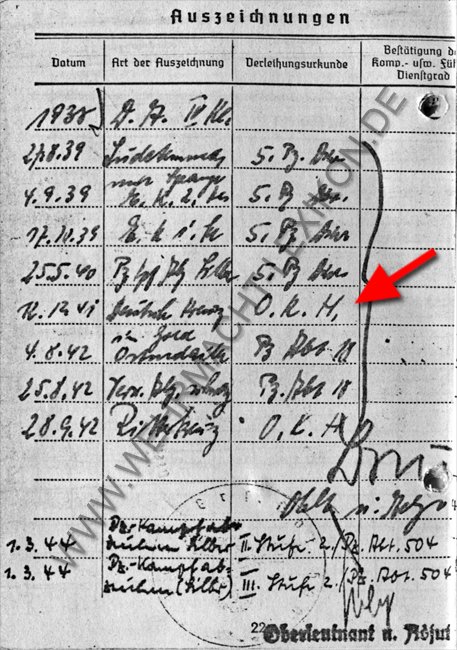 Auszeichnungen
Datum Art der Auszeichnung Verleihungsurkunde Bestätigung d
Komp.- usw. Füh
Dienstgrad
1938 D. A. IV Kl.
27.8.39 Sudetenmed 5. Pz. Div.
mit Spange
4.9.39 E. K. 2. Kl 5. Pz Div.
17.10.39 E. K. 1. Kl 5. Pz Div
25.5.40 Silber 5. Pz Div
12.12.41 Deutsch Kreuz O. K. H.
in Gold
4.8.42 Ostmedaille Pz Abt 18
25.8.42 Verw. Abz. Pz. Abt 18
28.9.42 Ritterkreuz O. K. H
1.3.44 Pz-Kampfab-
zeichen Silber II. Stufe 2./Pz. Abt. 504
1.3.44 Pz.-Kampfab-
zeichen (Silber) III. Stufe 2./Pz. Abt. 504
22
Oberleutnant u. Adjut
WWW.WEHRMACHT-LEXIKON.DE